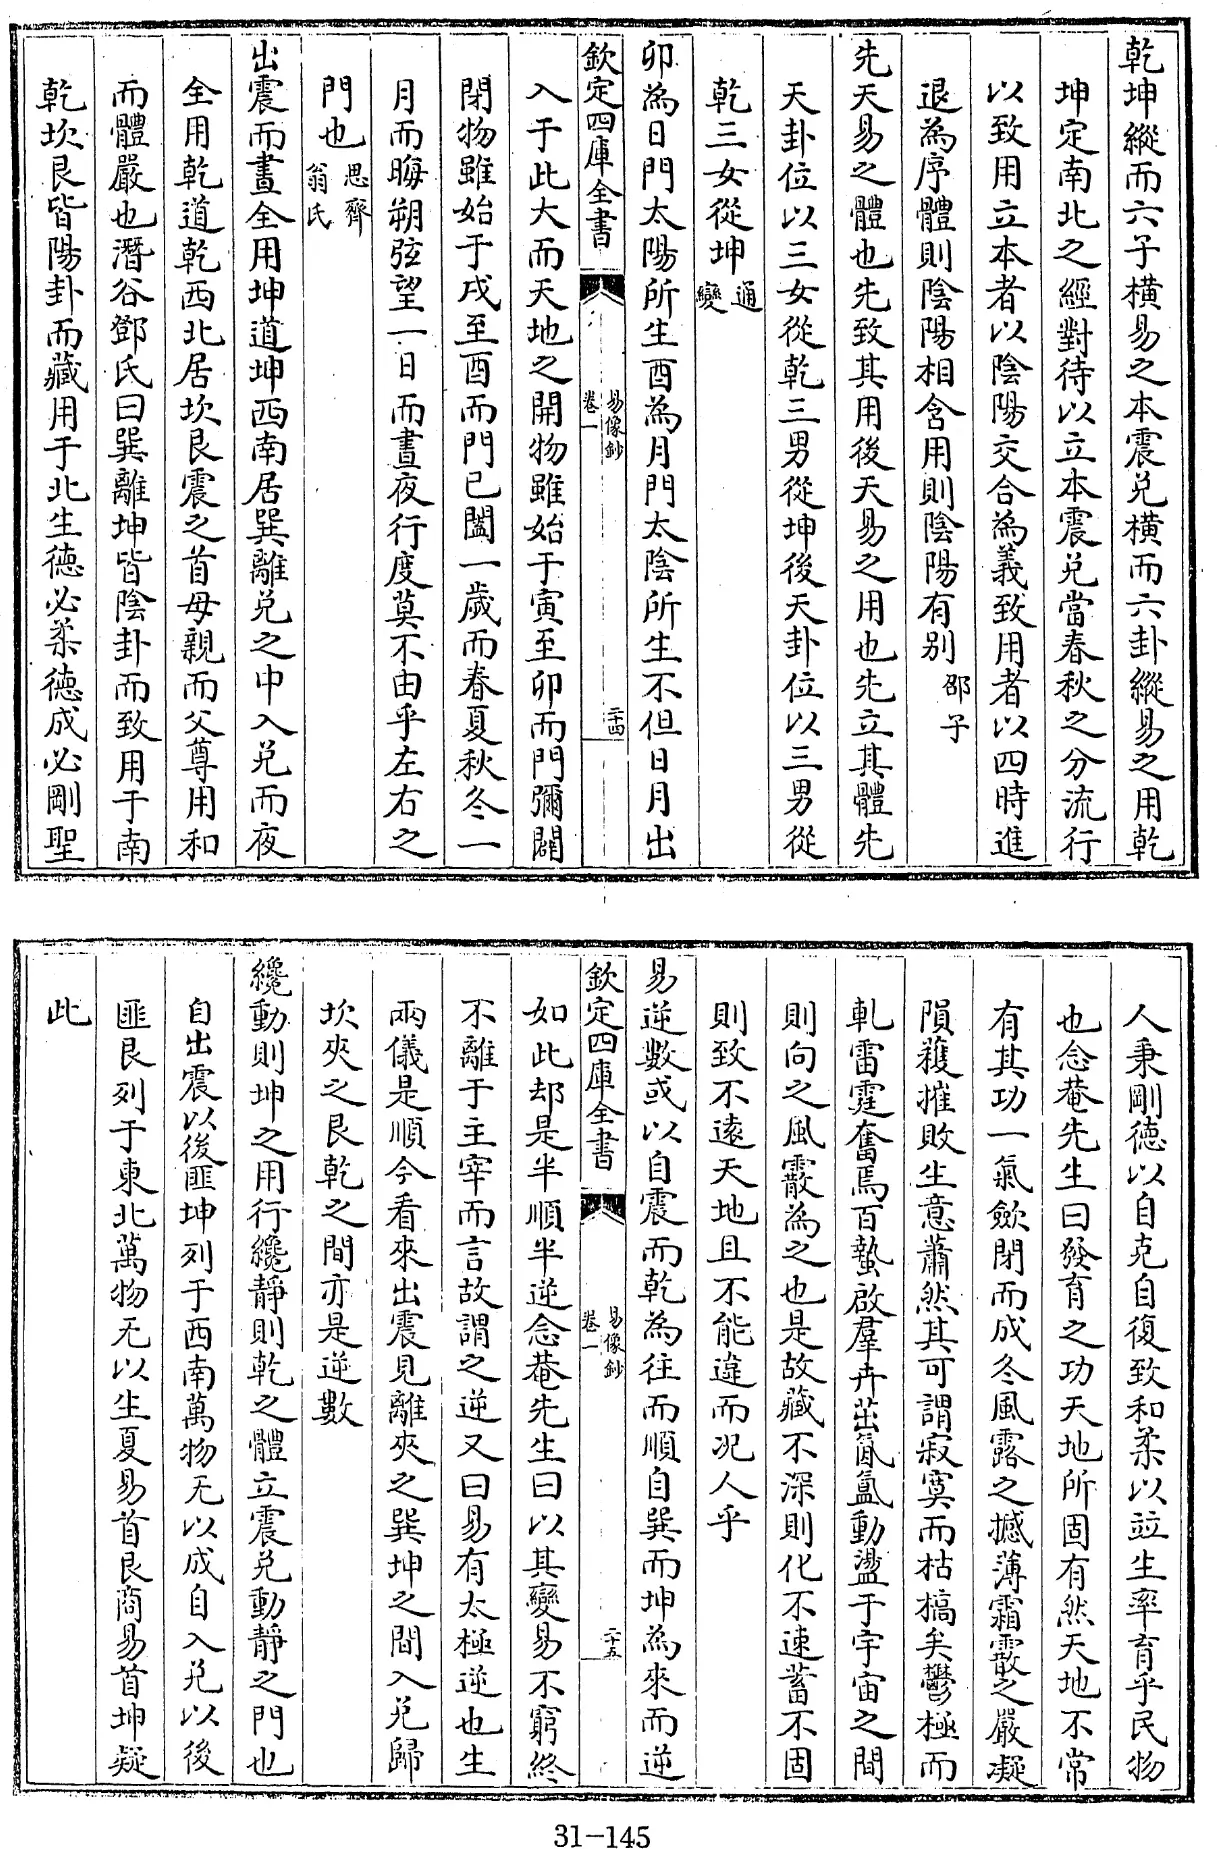 乾坤縱而六子横易之本震兑横而六卦縱易之用乾
坤定南北之經對待以立本震兑當春秋之分流行
以致用立本者以陰陽交合為義致用者以四時進
退為序體則陰陽相含用則陰陽有别邵子
先天易之體也先致其用後天易之用也先立其體先
天卦位以三女從乾三男從坤後天卦位以三男從
乾三女從坤通變
卯為日門太陽所生酉為月門太陰所生不但日月出
欽定四庫全書
易像鈔
卷一
二十四
入于此大而天地之開物雖始于寅至卯而門彌闢
閉物雖始于戌至酉而門已闔一歲而春夏秋冬一
月而晦朔弦望一日而晝夜行度莫不由乎左右之
門也思齊翁氏
出震而晝全用坤道坤西南居巽離兑之中入兑而夜
全用乾道乾西北居坎艮震之首母親而父尊用和
而體嚴也潛谷鄧氏曰巽離坤皆陰卦而致用于南
乾坎艮皆陽卦而藏用于北生德必柔德成必剛聖
人秉剛德以自克自復致和柔以竝生率育乎民物
也念菴先生曰發育之功天地所固有然天地不常
有其功一氣歛閉而成冬風露之撼薄霜霰之嚴凝
隕穫摧敗生意蕭然其可謂寂寞而枯槁矣鬱極而
軋雷霆奮焉百蟄啟羣卉茁氤氳動盪于宇宙之間
則向之風霰為之也是故藏不深則化不速蓄不固
則致不遠天地且不能違而况人乎
易逆數或以自震而乾為往而順自巽而坤為來而逆
欽定四庫全書
易像鈔
卷一
二十五
如此却是半順半逆念菴先生曰以其變易不窮終
不離于主宰而言故謂之逆又曰易有太極逆也生
兩儀是順今看來出震見離夾之巽坤之間入兑歸
坎夾之艮乾之間亦是逆數
纔動則坤之用行纔靜則乾之體立震兑動靜之門也
自出震以後匪坤列于西南萬物无以成自入兑以後
匪艮列于東北萬物无以生夏易首艮商易首坤疑
此
31-145